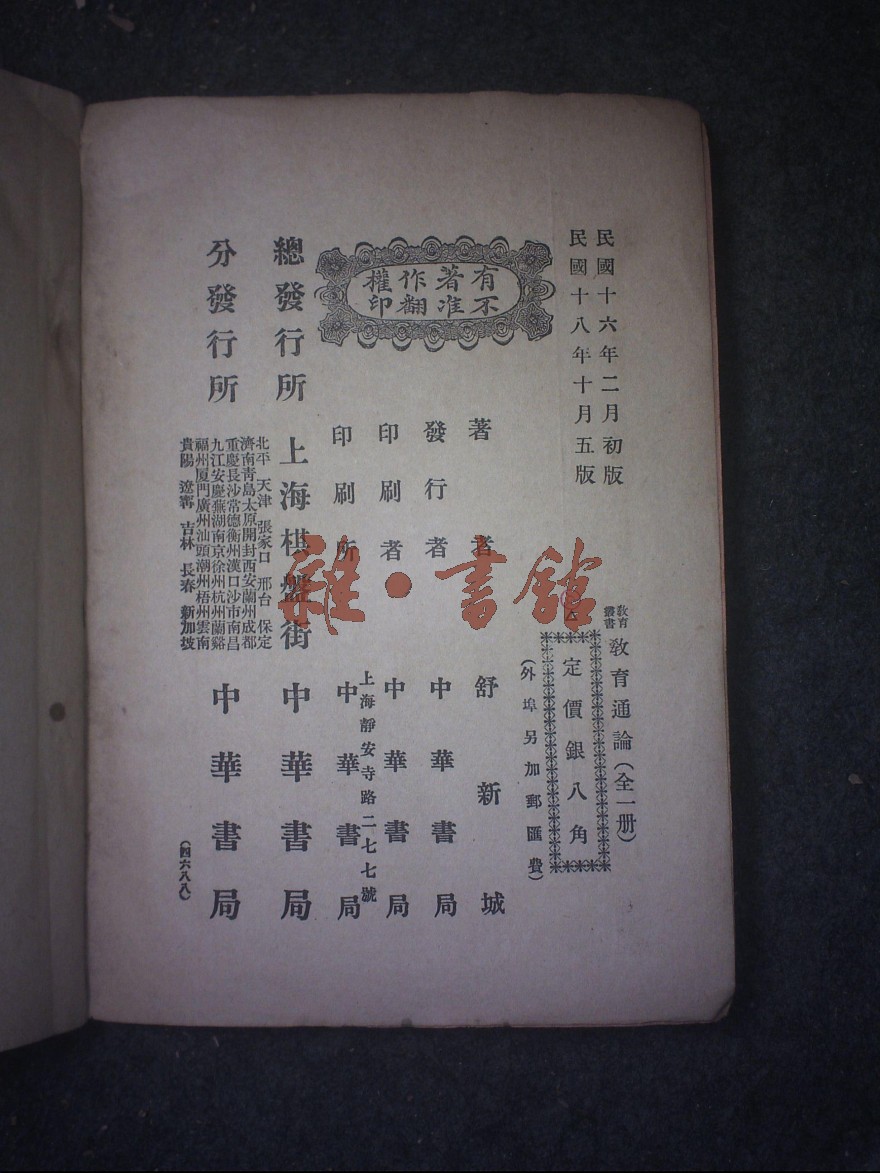 民國十六年二月初版
民國十八年十月五版
教育叢書
教育通論(全一册)
定價銀八角
(外埠另加郵匯費)
有著作權
不准翻印
著者 舒新城
發行者 中華書局
印刷者 中華書局
印刷所 中華書局
上海靜安寺路二七七號
總發行所 上海棋盤街 中華書局
分發行所 中華書局
北平 天津 張家口 邢台 保定
濟南青島太原開封西安蘭州成都
重慶長沙常德衡州漢口沙市南昌
九江安慶蕪湖南京徐州杭州蘭谿
福州厦門廣州汕頭潮州梧州雲南
貴陽 遼寧 吉林 長春 新加坡
(四六八八)
雜·書館